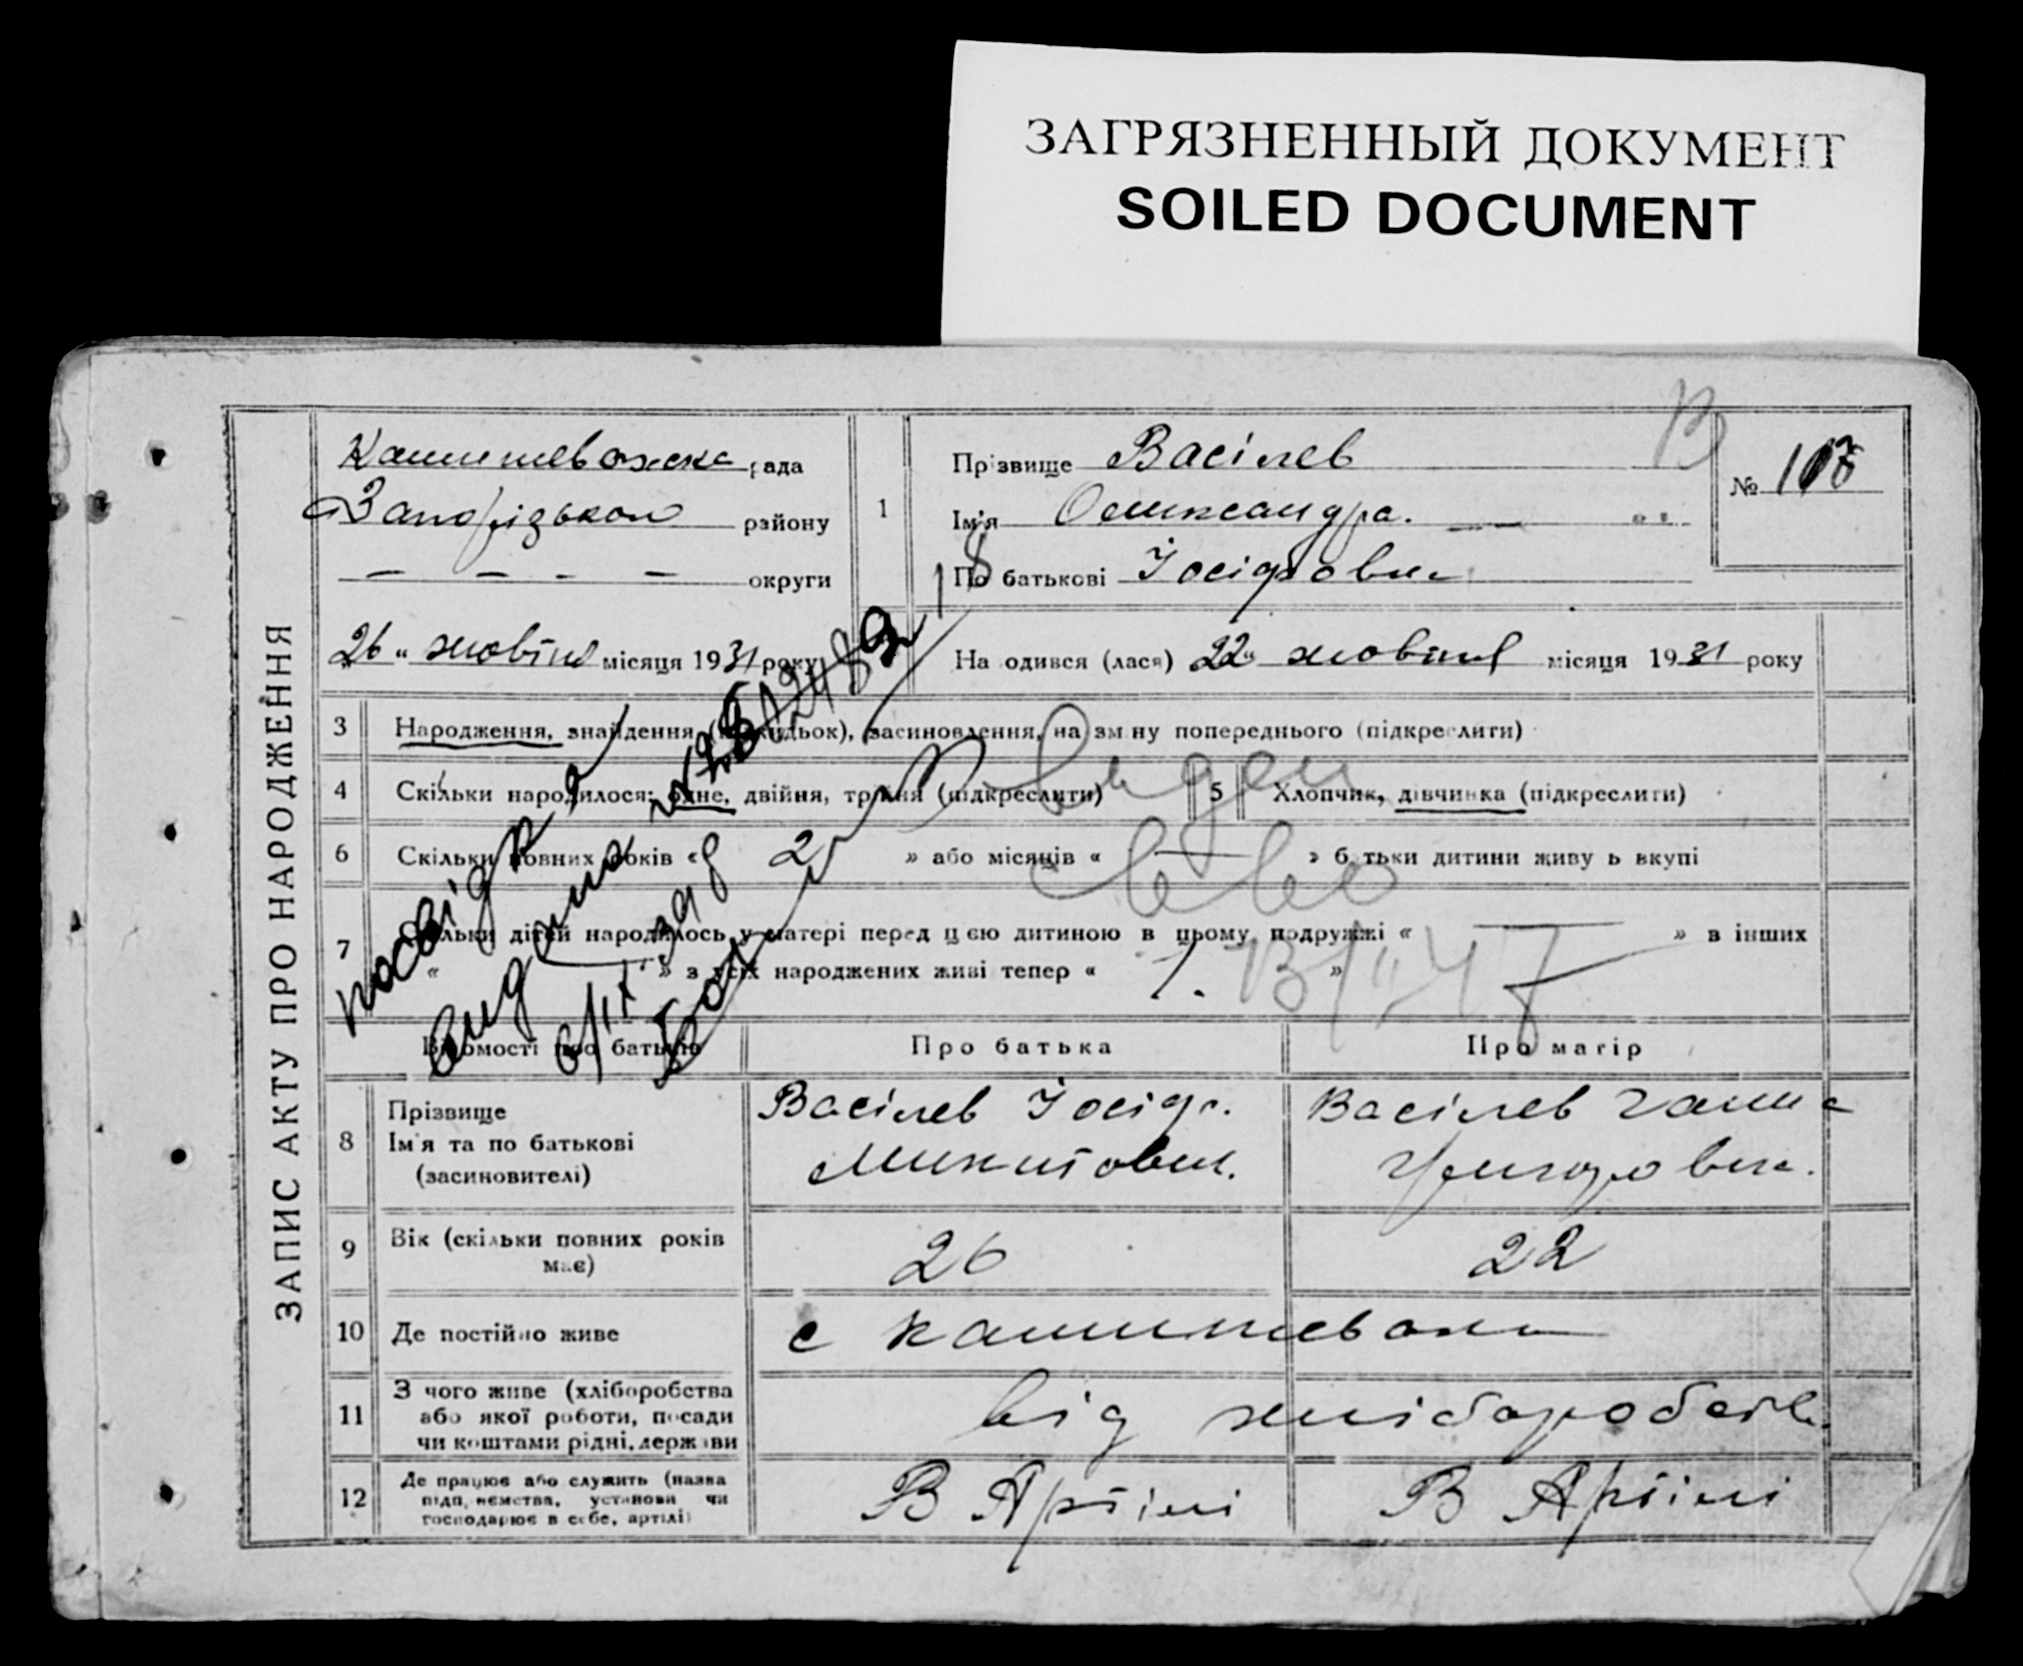 ЗАГРЯЗНЕННЫЙ ДОКУМЕНТ
SOILED DOCUMENT
ЗАПИС АКТУ ПРО НАРОДЖЕННЯ
рада
Запорізького району
— — — — округи
26 " жовтня місяця 1931 року
1
Прізвище Васілев
В
Ім'я Олександра.
По батькові Йосіфовна
№
Народився (лася) 22 " жовтня місяця 1931 року
3 Народження, знайдення (підкидьок), засиновлення, на зміну попереднього (підкреслити)
4 Скільки народилося: одне, двійня, трійня (підкреслити)
5 Хлопчик, дівчинка (підкреслити)
6 Скільки повних років « 2 » або місяців « — » батьки дитини живуть вкупі
7 Скільки дітей народилось у матері перед цією дитиною в цьому подружжі « — » в інших
« — » з усіх народжених живі тепер « 1. »
посвідка
видана
Выдан
св-во
Відомості про батьків
Про батька
Про матір
8 Прізвище
Ім'я та по батькові
(засиновителі)
Васілев Йосіф.
Микитович.
Васілев Ганна
Григоровна.
9 Вік (скільки повних років
має)
26
22
10 Де постійно живе
с
11 З чого живе (хліборобства
або якої роботи, посади
чи коштами рідні, держави
від хліборобств.
12 Де працює або служить (назва
підприємства, установи чи
господарює в себе, артілі)
В Артілі
В Артілі